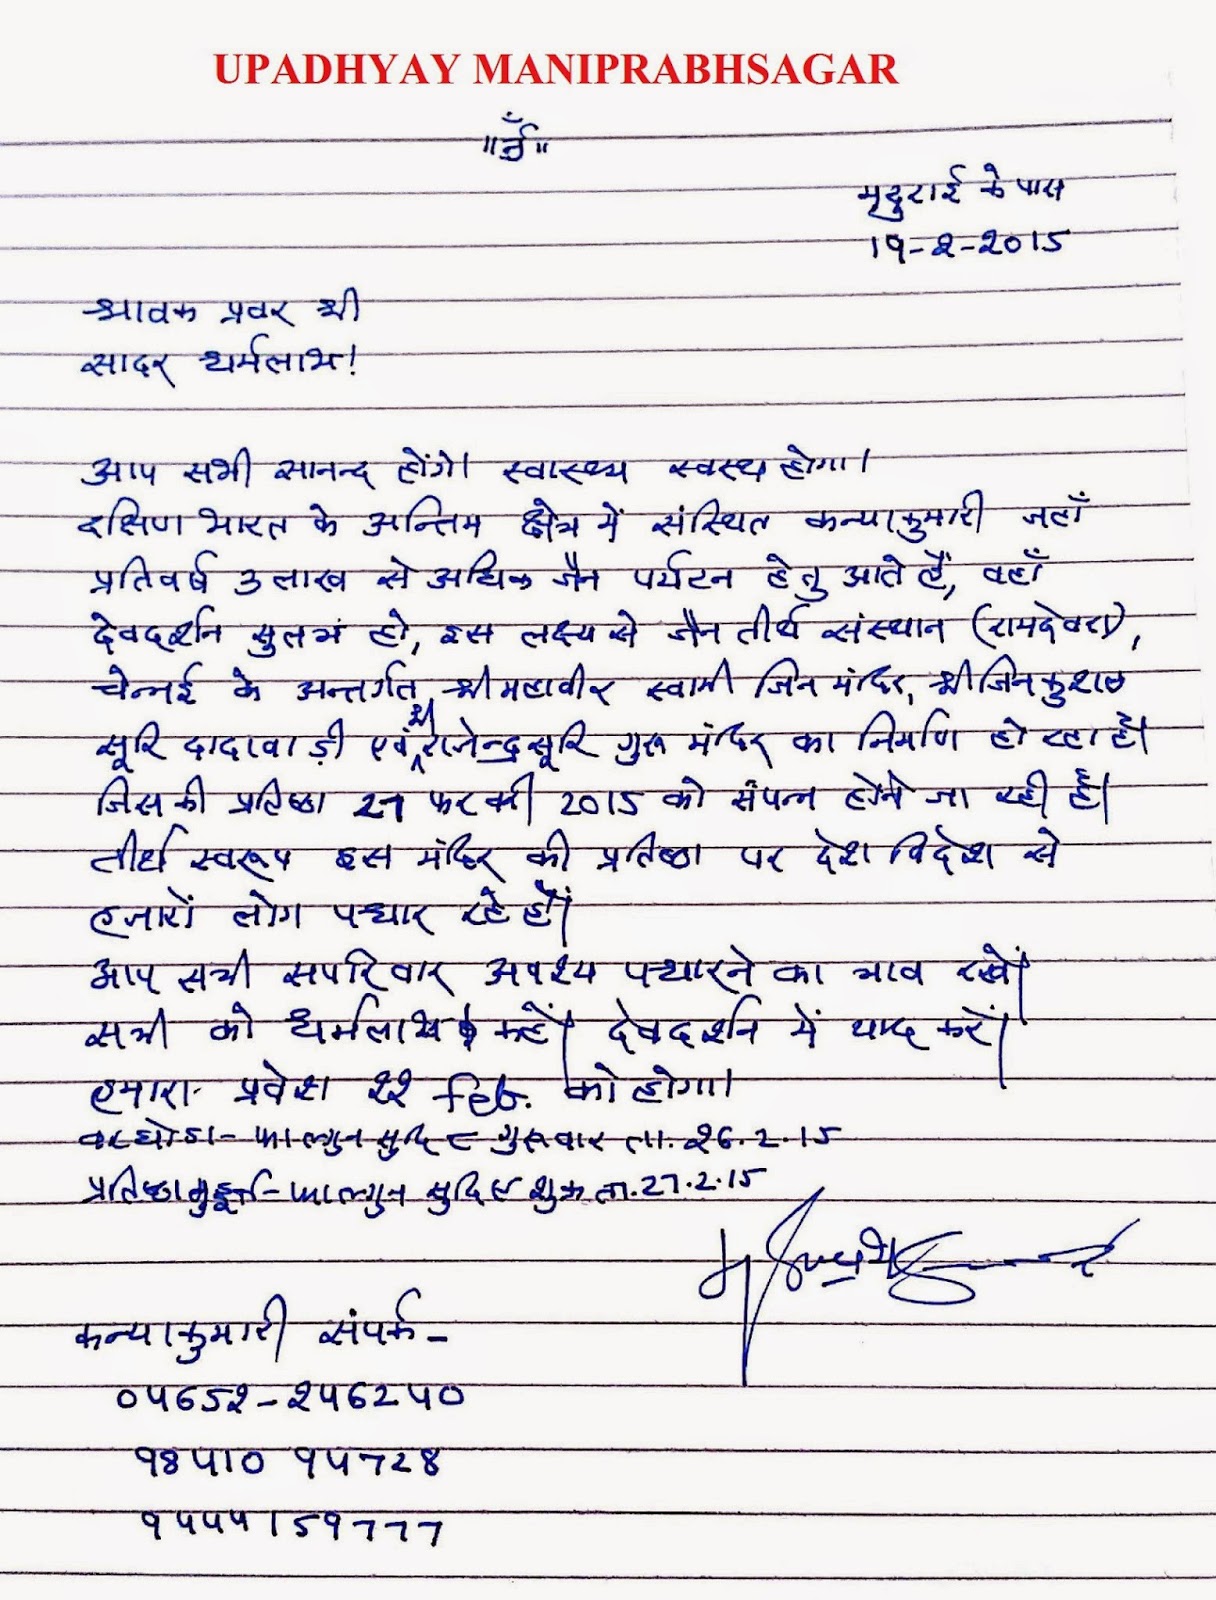 UPADHYAY MANIPRABHSAGAR
॥ ॐ ॥
मृदुराई के पास
19-2-2015
श्रावक प्रवर श्री
सादर धर्मलाभ!
आप सभी सानन्द होंगे। स्वास्थ्य स्वस्थ होगा।
दक्षिण भारत के अन्तिम क्षेत्र में संस्थित कन्याकुमारी जहाँ
प्रतिवर्ष 3 लाख से अधिक जैन पर्यटन हेतु आते हैं, वहाँ
देवदर्शन सुलभ हो, इस लक्ष्य से जैन तीर्थ संस्थान (रामदेवरा),
चेन्नई के अन्तर्गत श्री महावीर स्वामी जिन मंदिर, श्री जिनकुशल
सूरि दादावाड़ी एवं श्री राजेन्द्रसूरि गुरु मंदिर का निर्माण हो रहा है।
जिसकी प्रतिष्ठा 27 फरवरी 2015 को संपन्न होने जा रही है।
तीर्थ स्वरूप इस मंदिर की प्रतिष्ठा पर देश विदेश से
हजारों लोग पधार रहे हैं।
आप सभी सपरिवार अवश्य पधारने का भाव रखें।
सभी को धर्मलाभ कहें। देवदर्शन में याद करें।
हमारा प्रवेश 22 feb. को होगा।
वरघोडा - फाल्गुन सुदि ८ गुरुवार ता. 26.2.15
प्रतिष्ठा मुहूर्त - फाल्गुन सुदि ९ शुक्र ता. 27.2.15
कन्याकुमारी संपर्क -
04652-246240
98410 94728
9444159777